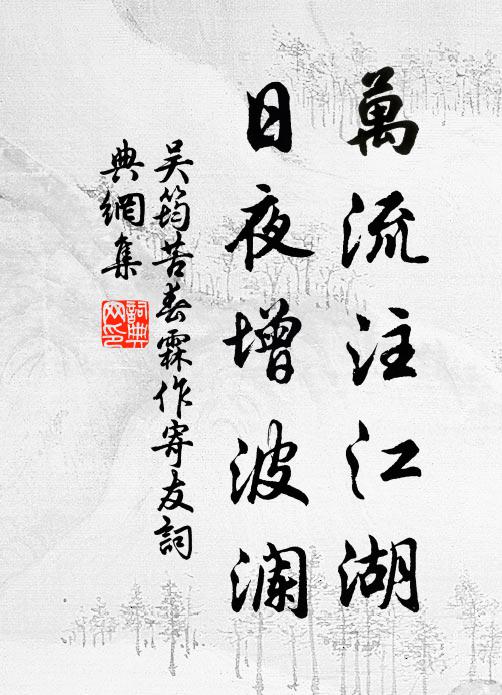 萬流注江湖
日夜增波澜
吴筠苦春霖作寄友詞
典網集
詞典
网印